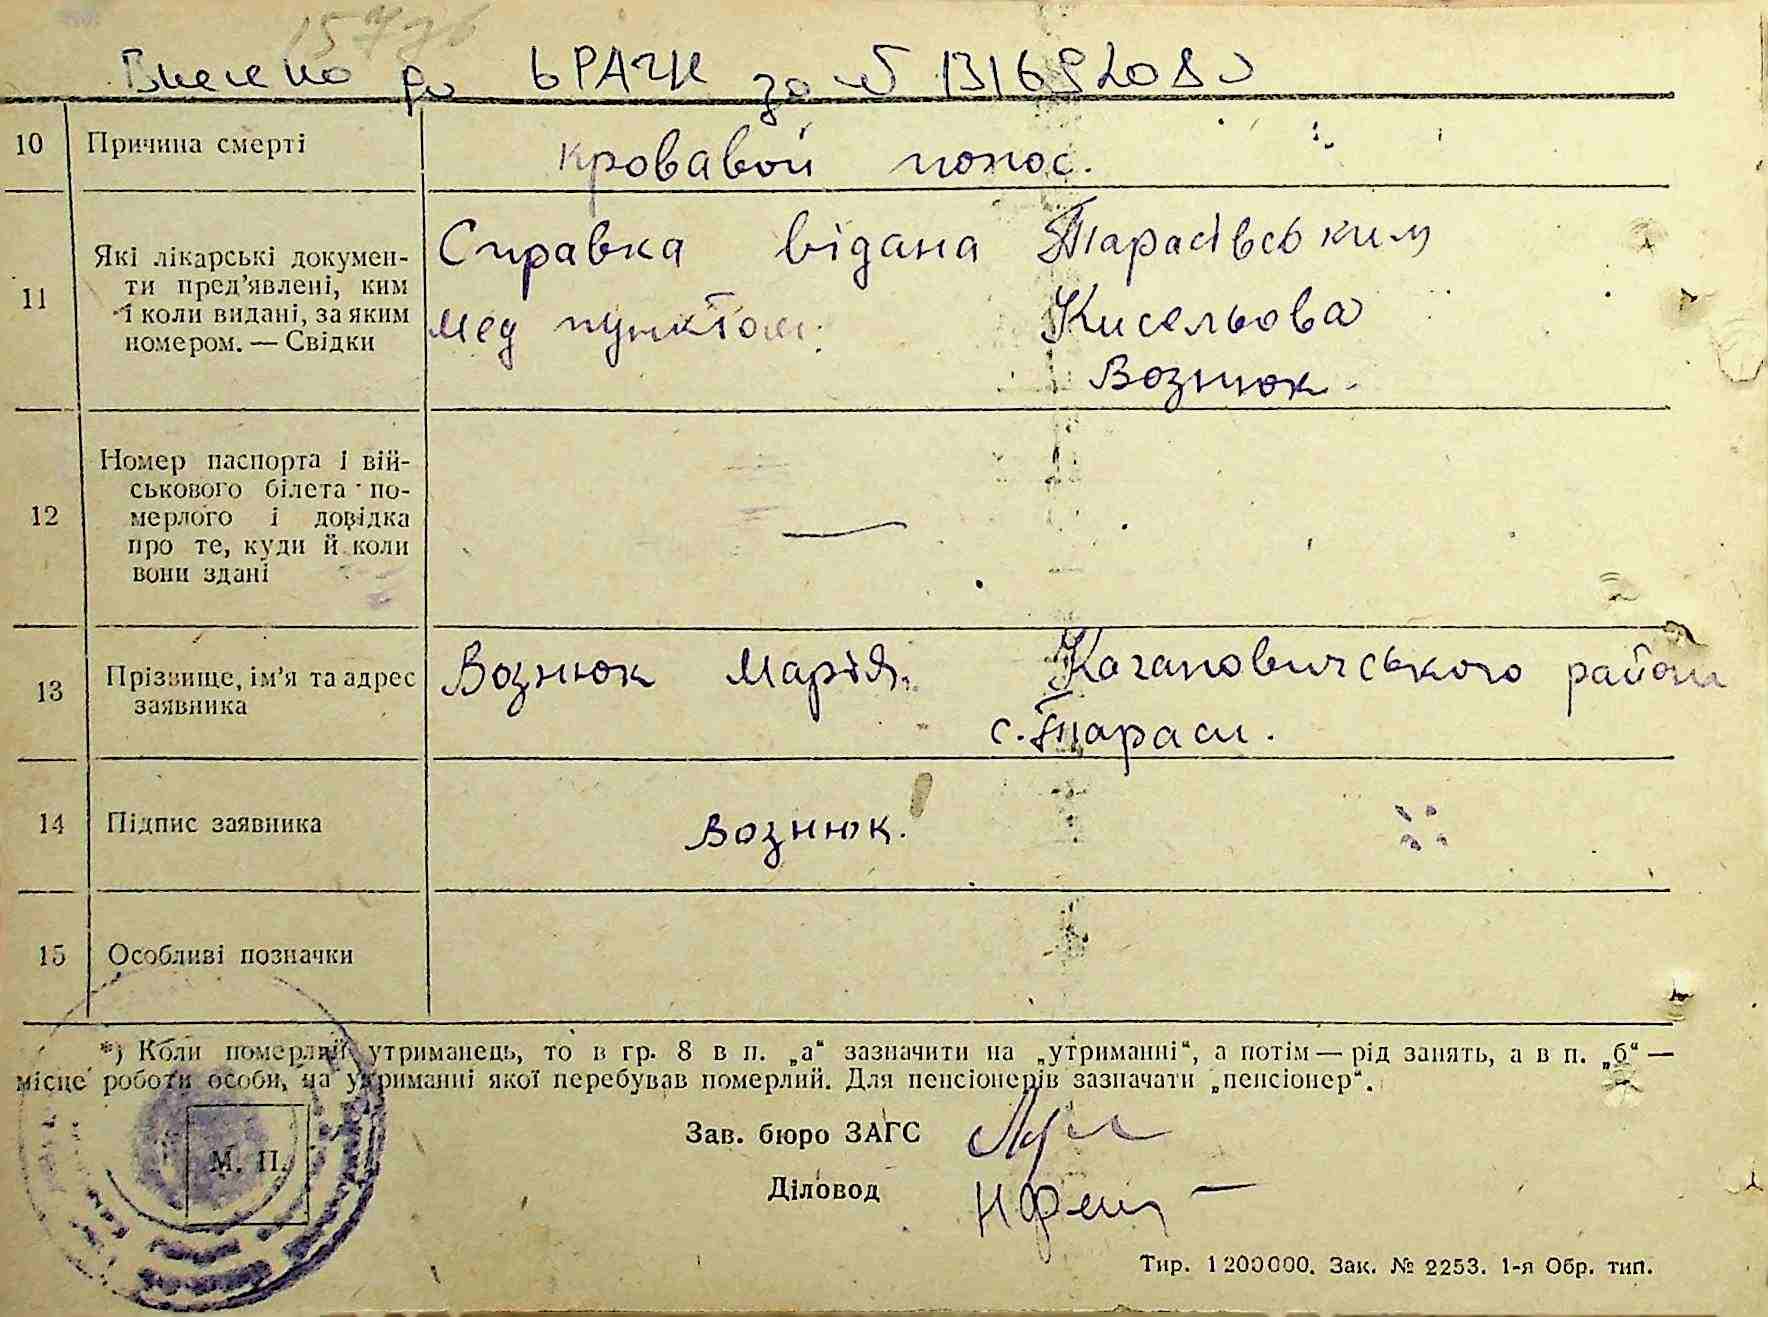 Внесено до ЬРАЧК за №
10 Причина смерті
Кровавой понос.
11 Які лікарські докумен-
ти пред’явлені, ким
і коли видані, за яким
номером. — Свідки
Справка видана Тарасівським
мед пунктом. Кисельова
Вознюк.
12 Номер паспорта і вій-
ськового білета по-
мерлого і довідка
про те, куди й коли
вони здані
—
13 Прізвище, ім’я та адрес
заявника
Вознюк Марія. Кагановичського район
с. Тараси.
14 Підпис заявника
Вознюк.
15 Особливі позначки
*) Коли померлий утриманець, то в гр. 8 в п. „а“ зазначити на „утриманні“, а потім — рід занять, а в п. „б“ —
місце роботи особи, на утриманні якої перебував померлий. Для пенсіонерів зазначати „пенсіонер“.
Зав. бюро ЗАГС
М. П.
Діловод
Тир. 1200000. Зак. № 2253. 1-я Обр. тип.